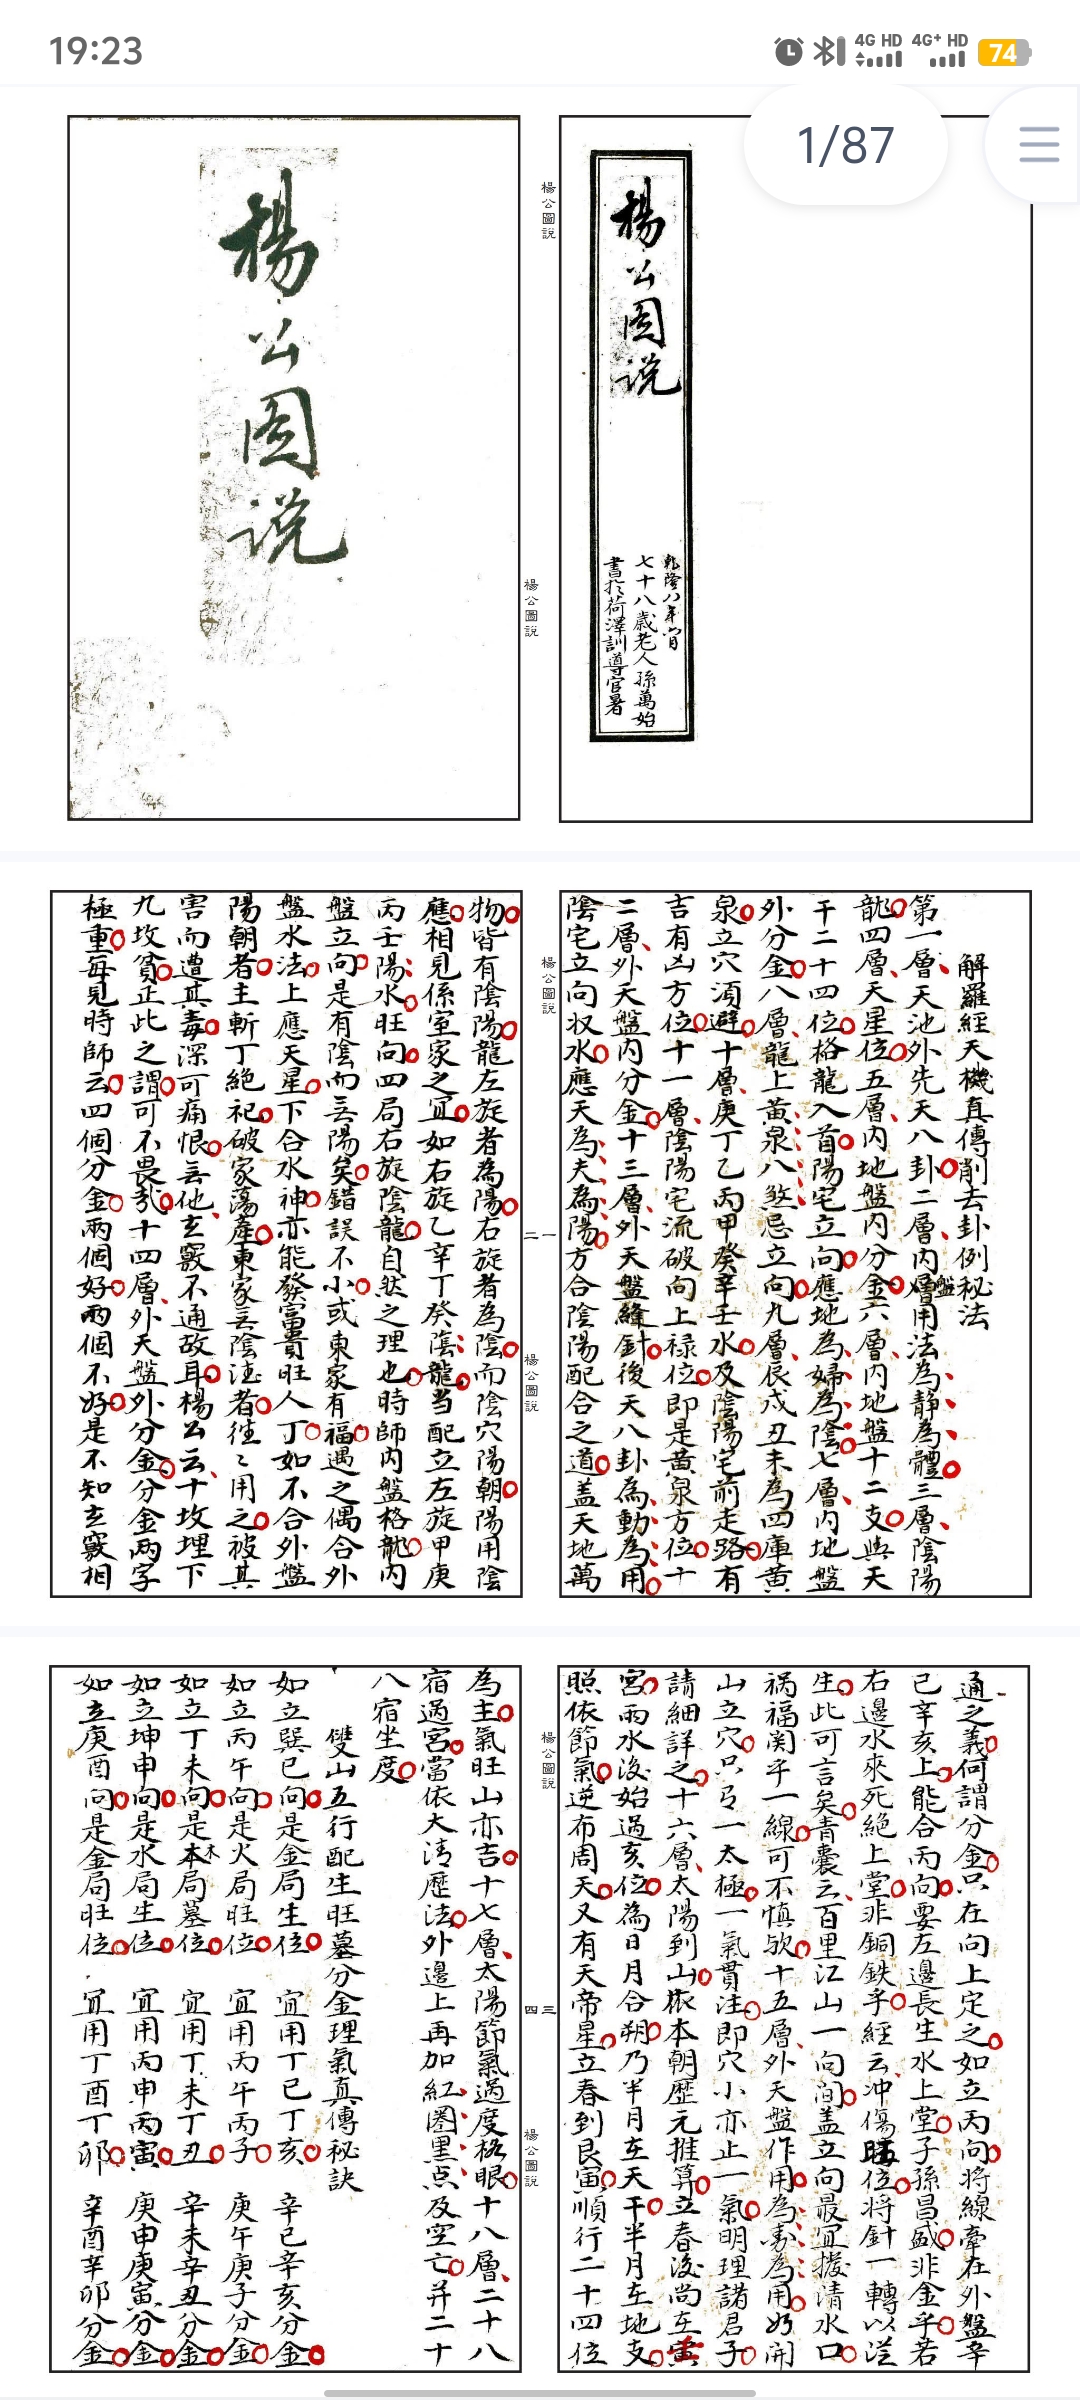 19:23
4G HD
4G+ HD
74
1/87
楊公图说
楊公圖說
楊公图说
乾隆八年六月
七十八歲老人孫萬始
書於荷澤訓導官署
楊公圖說
解羅經天機真傳削去卦例秘法
第一層天池外先天八卦二層內盤層用法為靜為體三層陰陽
龍四層天星位五層內地盤內分金六層內地盤十二支與天
干二十四位格龍入首陽宅立向應地為婦為陰七層內地盤
外分金八層龍上黃泉八煞忌立向九層辰戌丑未為四庫黃
泉立穴須避十層庚丁乙丙甲癸辛壬水及陰陽宅前走路有
吉有凶方位十一層陰陽宅流破向上禄位即是黃泉方位十
二層外天盤內分金十三層外天盤縫針後天八卦為動為用
陰宅立向収水應天為夫為陽方合陰陽配合之道盖天地萬
楊公圖說
一
二
楊公圖說
物皆有陰陽龍左旋者為陽右旋者為陰而陰穴陽朝陽用陰
應相見係室家之宜如右旋乙辛丁癸陰龍当配立左旋甲庚
丙壬陽水旺向四局右旋陰龍自然之理也時師內盤格龍內
盤立向是有陰而无陽矣錯誤不小或東家有福遇之偶合外
盤水法上應天星下合水神亦能發富貴旺人丁如不合外盤
陽朝者主斬丁絕祀破家蕩產東家无陰德者徃〻用之被其
害而遭其毒深可痛恨无他玄竅不通故耳楊公云十坟埋下
九坟貧正此之謂可不畏哉十四層外天盤外分金分金兩字
極重每見時師云四個分金兩個好兩個不好是不知玄竅相
通之義何謂分金只在向上定之如立丙向將線牽在外盤辛
巳辛亥上能合丙向要左邊長生水上堂子孫昌盛非金乎若
右邊水來死絕上堂非銅鉄乎經云冲傷旺位將針一轉以從
生此可言矣青囊云百里江山一向间盖立向最宜撥清水口
祸福関乎一線可不慎欤十五層外天盤作用為夀為用妁開
山立穴只弓一太極一氣貫注即穴小亦止一氣明理諸君子
請細詳之十六層太陽到山依本朝歷元推算立春後尚在寅
宮雨水後始過亥位為日月合朔乃半月在天干半月在地支
照依節氣逆布周天又有天帝星立春到艮寅順行二十四位
楊公圖說
三
四
楊公圖說
為主氣旺山亦吉十七層太陽節氣過度極眼十八層二十八
宿過宮當依大清歷法外邊上再加紅圈黑点及空亡并二十
八宿坐度
雙山五行配生旺墓分金理氣真傳秘訣
如立巽巳向是金局生位 宜用丁巳丁亥 辛巳辛亥分金
如立丙午向是火局旺位 宜用丙午丙子 庚午庚子分金
如立丁未向是木局墓位 宜用丁未丁丑 辛未辛丑分金
如立坤申向是水局生位 宜用丙申丙寅 庚申庚寅分金
如立庚酉向是金局旺位 宜用丁酉丁卯 辛酉辛卯分金